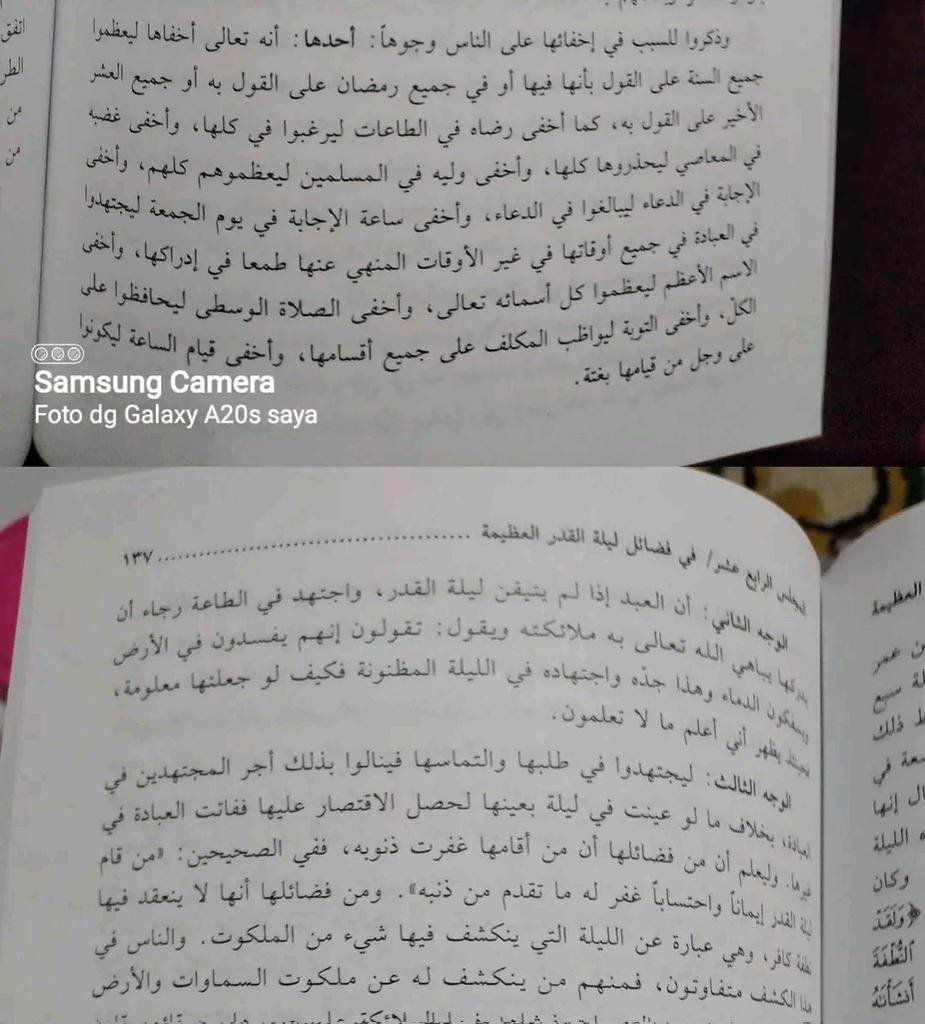 وذكروا للسبب في إخفائها على الناس وجوهاً: أحدها: أنه تعالى أخفاها ليعظموا
جميع السنة على القول بأنها فيها أو في جميع رمضان على القول به أو جميع العشر
الأخير على القول به، كما أخفى رضاه في الطاعات ليرغبوا في كلها، وأخفى غضبه
في المعاصي ليحذروها كلها، وأخفى وليه في المسلمين ليعظموهم كلهم، وأخفى
الإجابة في الدعاء ليبالغوا في الدعاء، وأخفى ساعة الإجابة في يوم الجمعة ليجتهدوا
في العبادة في جميع أوقاتها في غير الأوقات المنهي عنها طمعا في إدراكها، وأخفى
الاسم الأعظم ليعظموا كل أسمائه تعالى، وأخفى الصلاة الوسطى ليحافظوا على
الكلّ، وأخفى التوبة ليواظب المكلف على جميع أقسامها، وأخفى قيام الساعة ليكونوا
على وجل من قيامها بغتة.
اتفق
الطر
من
من
Samsung Camera
Foto dg Galaxy A20s saya
المجلس الرابع عشر/ في فضائل ليلة القدر العظيمة ............ ١٣٧
الوجه الثاني: أن العبد إذا لم يتيقن ليلة القدر، واجتهد في الطاعة رجاء أن
يدركها يباهي الله تعالى به ملائكته ويقول: تقولون إنهم يفسدون في الأرض
ويسفكون الدماء وهذا جدّه واجتهاده في الليلة المظنونة فكيف لو جعلتها معلومة،
فحينئذ يظهر أني أعلم ما لا تعلمون.
الوجه الثالث: ليجتهدوا في طلبها والتماسها فينالوا بذلك أجر المجتهدين في
العبادة، بخلاف ما لو عينت في ليلة بعينها لحصل الاقتصار عليها ففاتت العبادة في
غيرها. وليعلم أن من فضائلها أن من أقامها غفرت ذنوبه، ففي الصحيحين: «من قام
ليلة القدر إيماناً واحتساباً غفر له ما تقدم من ذنبه». ومن فضائلها أنها لا ينعقد فيها
نطفة كافر، وهي عبارة عن الليلة التي ينكشف فيها شيء من الملكوت. والناس في
هذا الكشف متفاوتون، فمنهم من ينكشف له عن ملكوت السماوات والأرض
العظيمة
ن عمر
لة سبع
ذلك
سعة في
ال إنها
ه الليلة
وكان
﴿وَلَقَدْ
النُّطْفَةَ
أَنشَأْنَهُ